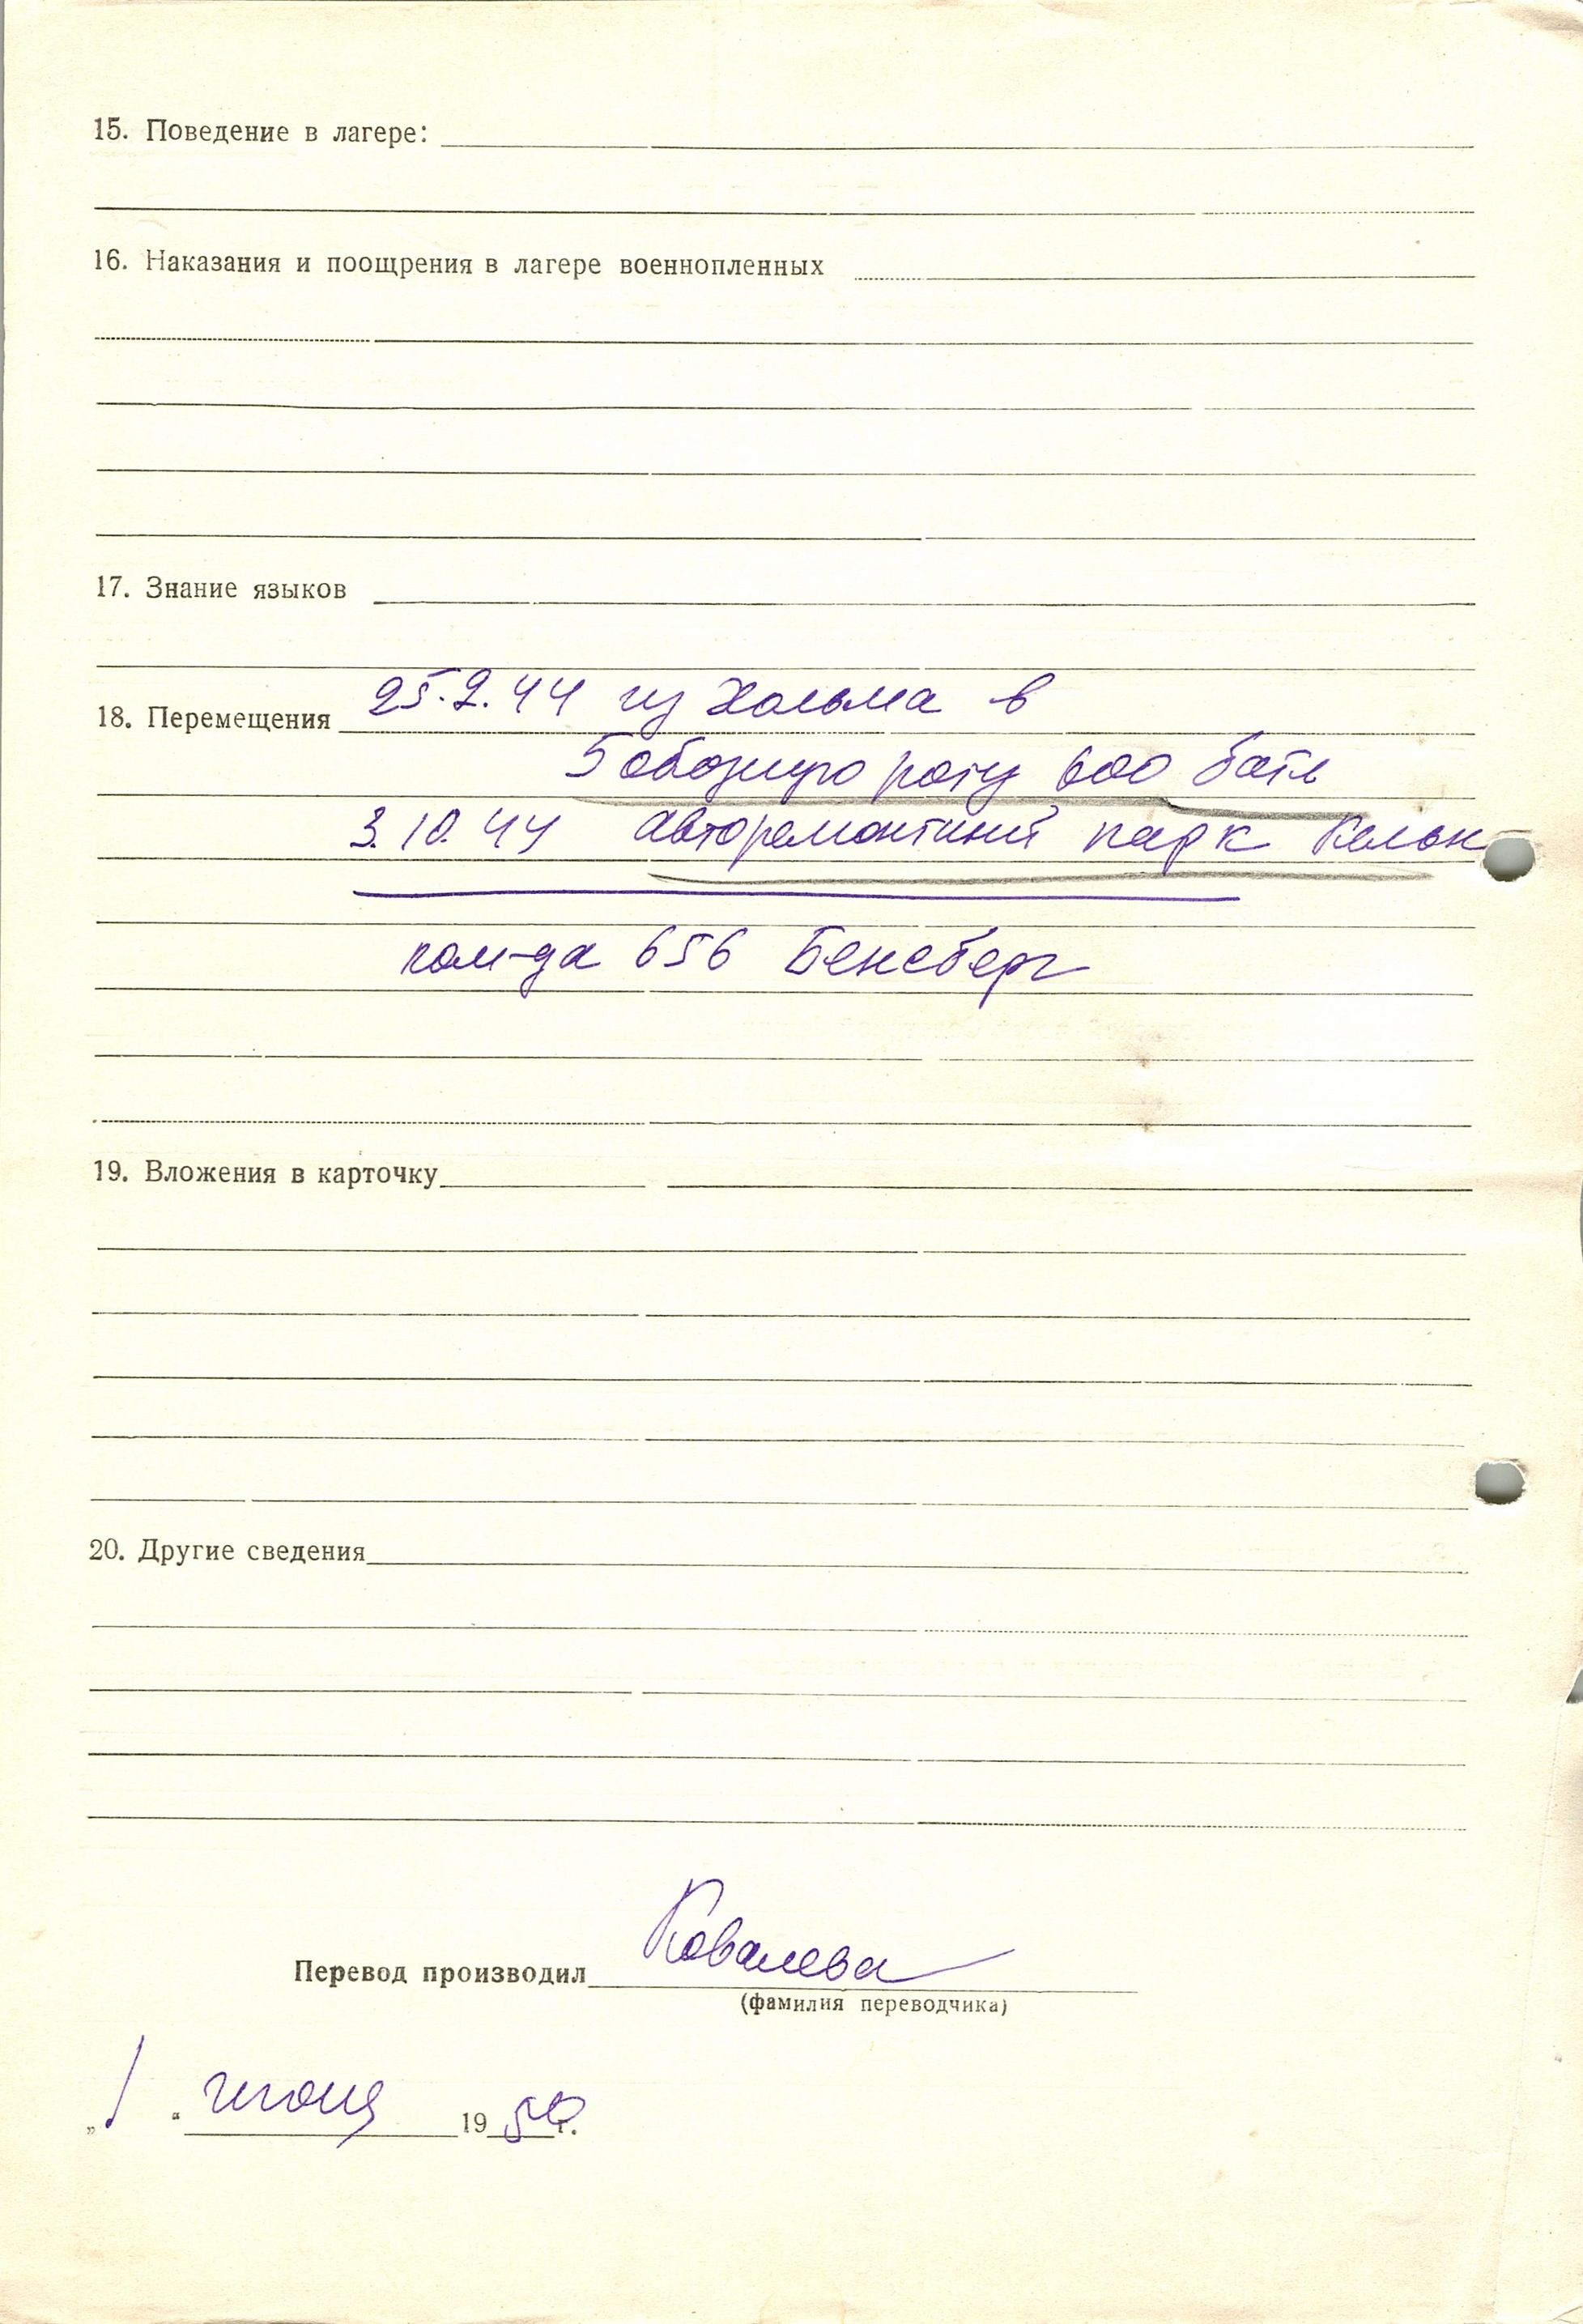 15. Поведение в лагере:
16. Наказания и поощрения в лагере военнопленных
17. Знание языков
18. Перемещения 25.2.44 из Хольма в
5 обозную роту 600 батл
3.10.44 авторемонтный парк Кельн
ком-да 656 Бенсберг
19. Вложения в карточку
20. Другие сведения
Перевод производил Ковалева
(фамилия переводчика)
„1“ июня 1950 г.